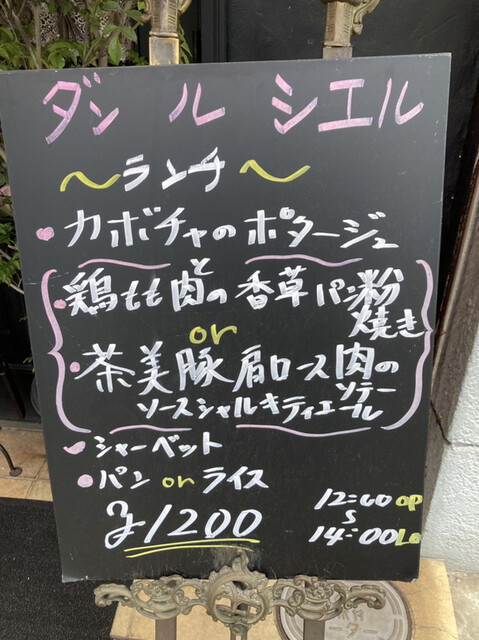 ダン ル シエル
～ランチ～
・カボチャのポタージュ
・鶏もも肉の香草パン粉焼き
or
・茶美豚肩ロース肉のソテー
ソースシャルキティエール
・シャーベット
・パン or ライス
1200
12:00 op
S
14:00 Lo